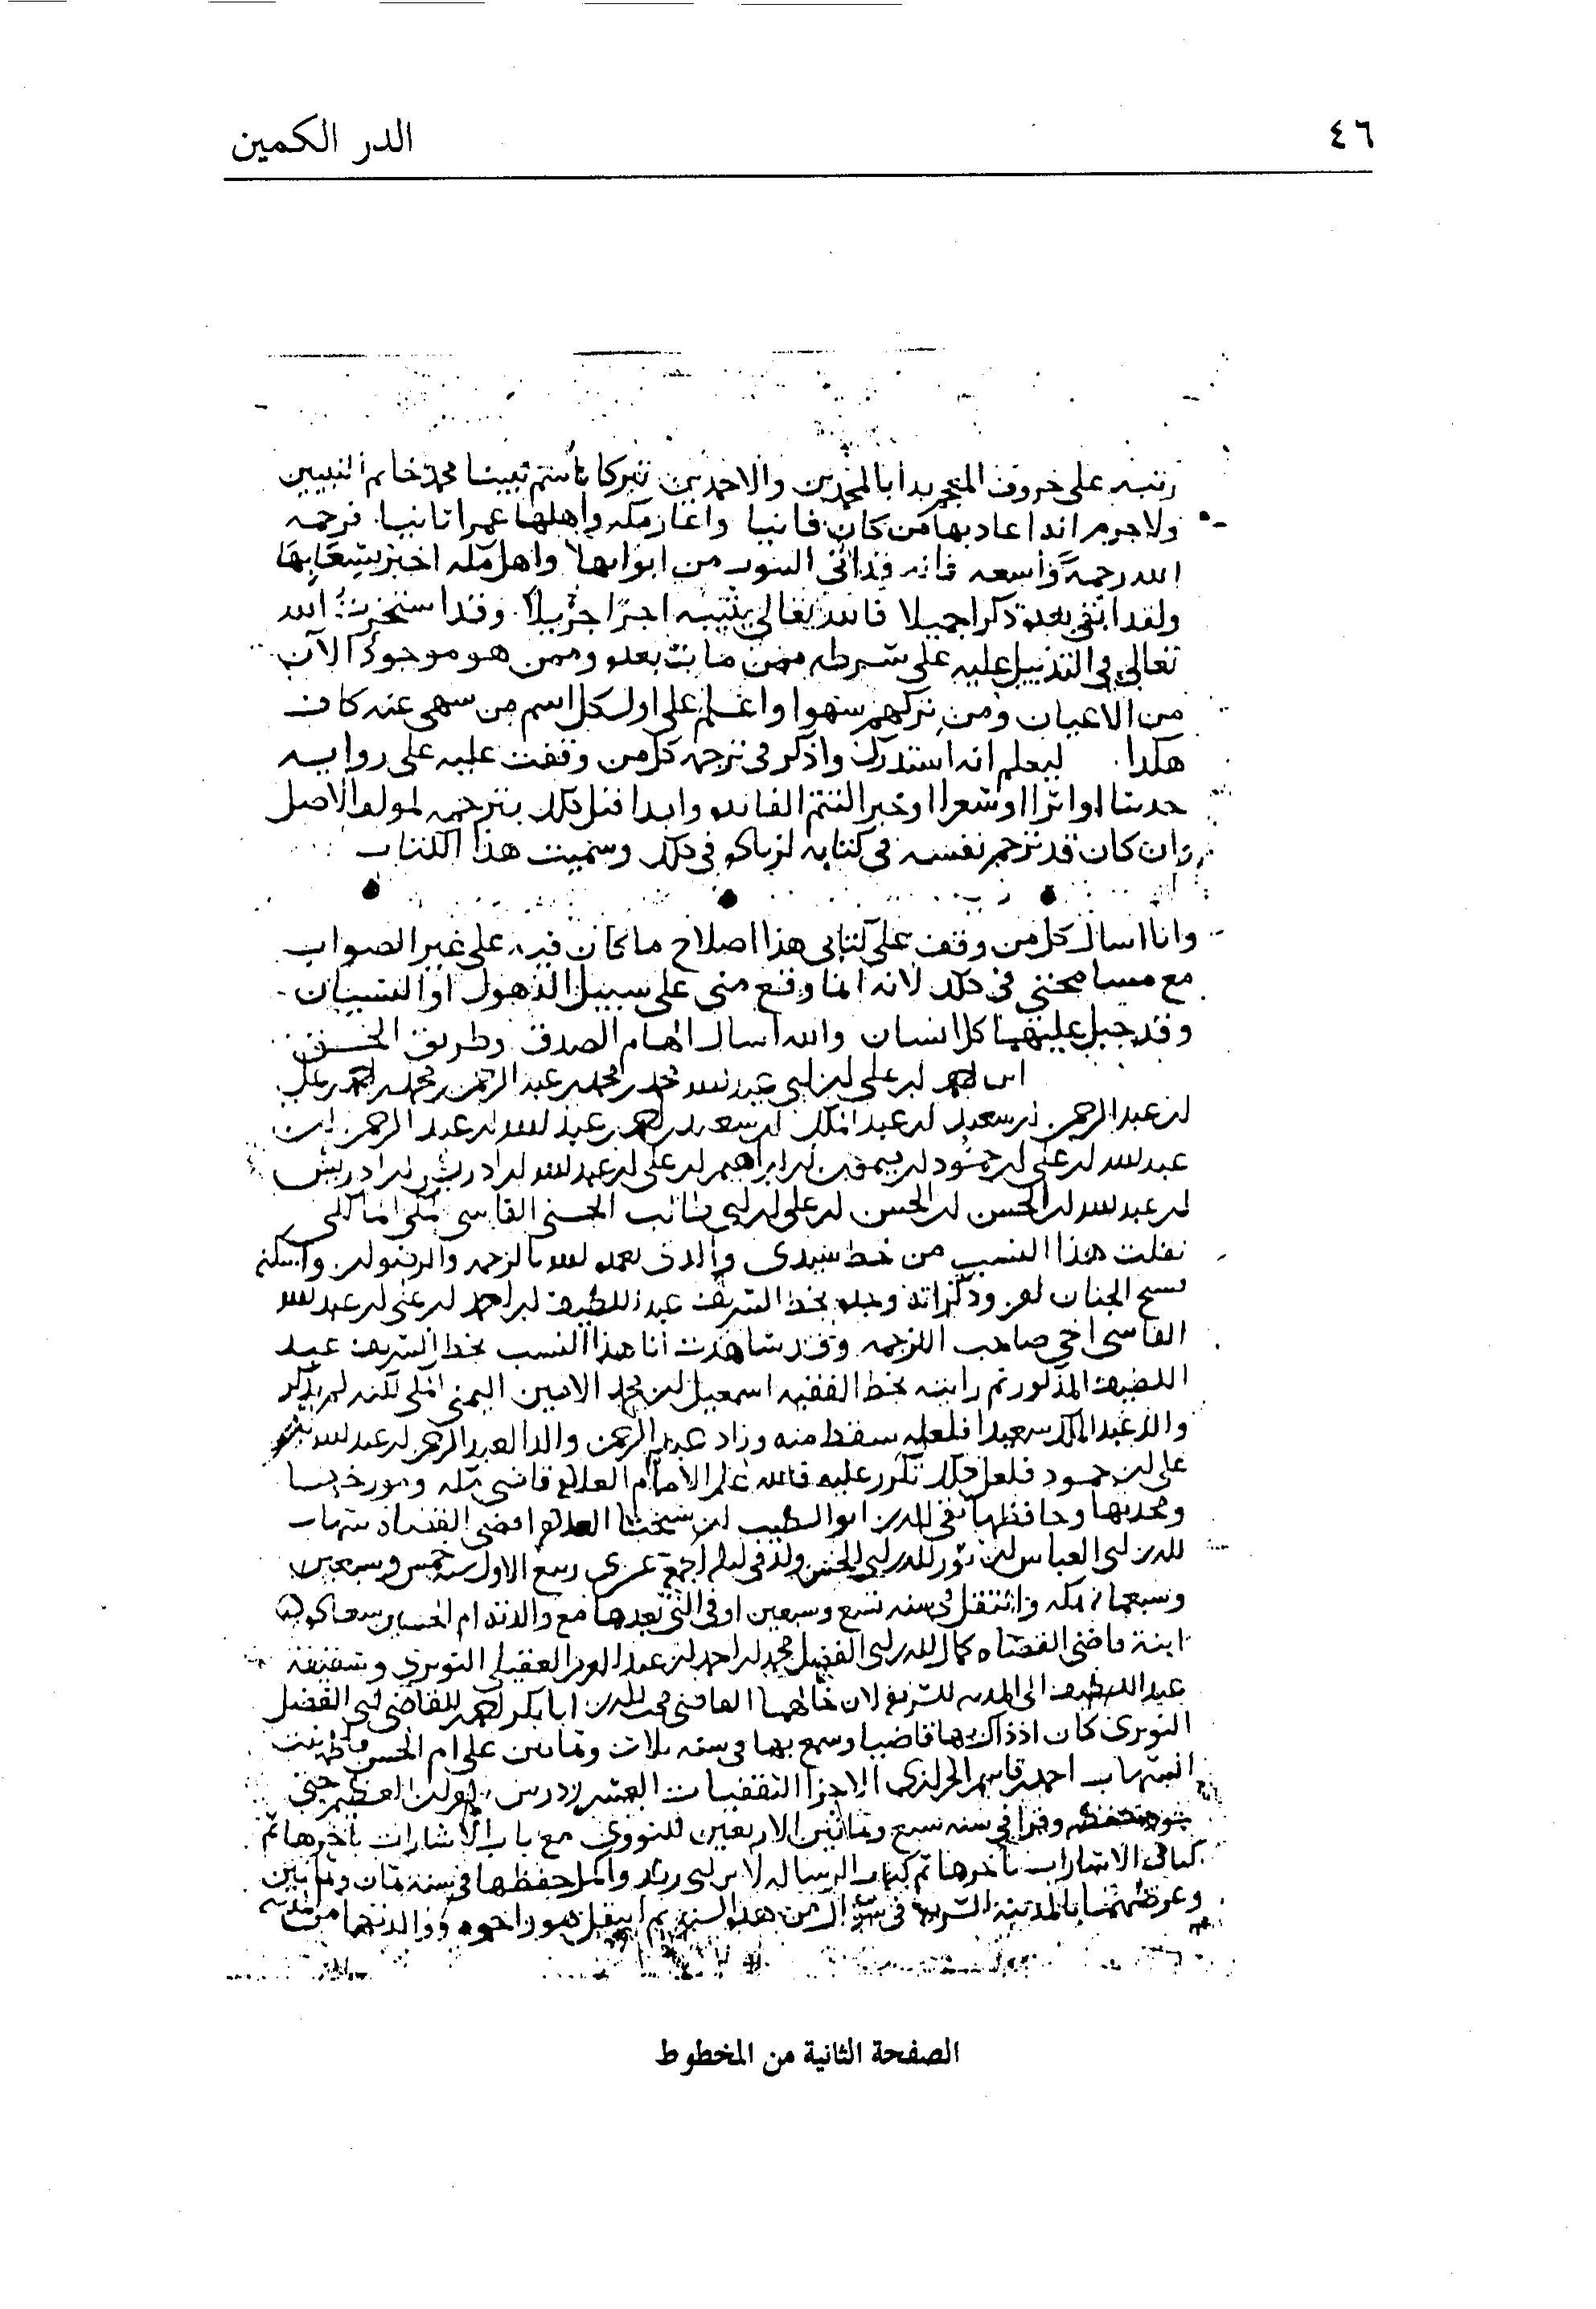 ٤٦
الدر الكمين
رتبه على حروف المعجم بدا بالمحمدين والاحمدين تبركا باسم نبينا محمد خاتم النبيين
ولا جرم انه اعاد بها من كان فانيا واعاز مكه واهلها عمرا ثانيا فرحمه
الله رحمة واسعه فانه قد اتى البيوت من ابوابها واهل مكه اخبر بشعابها
ولقد ابقى بعده ذكرا جميلا فالله تعالى يثيبه اجرا جزيلا وقد استخرت الله
تعالى في التذييل عليه على شرطه ممن مات بعده وممن هو موجود الآن
من الاعيان ومن تركهم سهوا واعلم على اول كل اسم من سهى عنه كاف
هكذا ليعلم انه استدرك واذكر في ترجمة كل من وقفت عليه على روايه
حديثا او اثرا او شعرا او خبرا لتتم الفائده وابدا قبل ذلك بترجمه لمولف الاصل
وان كان قد ترجم نفسه في كتابه لزيادة في ذلك وسميت هذا الكتاب
وانا اسال كل من وقف على كتابي هذا اصلاح ما كان فيه على غير الصواب
مع مسامحتي في ذلك لانه انما وقع مني على سبيل الذهول او النسيان
وقد جبل عليهما كل انسان والله اسال الهام الصدق وطريق الحق
بن احمد بن علي بن ابي عبد الله محمد بن محمد بن عبد الرحمن بن محمد بن احمد بن علي
بن عبد الرحمن بن سعيد بن عبد الملك بن سعيد بن احمد بن عبد الله بن عبد الرحمن ابن
عبد الله بن علي بن حمود بن ميمون بن ابراهيم بن علي بن عبد الله بن ادريس بن ادريس
بن عبد الله بن الحسن بن الحسن بن علي بن ابي طالب الحسني الفاسي المكي المالكي
نقلت هذا النسب من خط سيدي والدي تغمده الله بالرحمه والرضوان واسكنه
فسيح الجنان وذكر انه وجده بخط الشريف عبد اللطيف بن احمد بن علي بن عبد الله
الفاسي اخي صاحب الترجمه وقد شاهدت انا هذا النسب بخط الشريف عبد
اللطيف المذكور ثم رايته بخط الفقيه اسمعيل بن محمد الامين اليمني المكي لكنه لم يذكر
والد عبد الملك سعيدا فلعله سقط منه وزاد عبد الرحمن والدا لعبد الرحمن بن عبد الله بن
علي بن حمود فلعل ذلك تكرر عليه فالله اعلم الامام العلامه قاضي مكه ومورخها
ومحدثها وحافظها تقي الدين ابو الطيب بن شيخنا العلامه اقضى القضاة شهاب
الدين ابي العباس بن نور الدين ابي الحسن ولد في ليلة الجمعة عشري ربيع الاول سنه خمس وسبعين
وسبعمائه بمكه وانتقل في سنه تسع وسبعين او في التي بعدها مع والدته ام الحسين سعادة
ابنة قاضي القضاه كمال الدين ابي الفضل محمد بن احمد بن عبد العزيز العقيلي النويري وشقيقه
عبد اللطيف الى المدينه الشريفة لان خالهما القاضي محب الدين ابا بكر احمد بن القاضي ابي الفضل
النويري كان اذ ذاك بها قاضيا وسمع بها في سنه ثلاث وثمانين على ام الحسن فاطمه بنت
الشهاب احمد بن قاسم الحرازي الاجزا الثقفيات العشره ودرس القرآن العظيم حتى
جود حفظه وقرا في سنه سبع وثمانين الاربعين للنووي مع باب الاشارات باخرها ثم
كتاب الرساله لابن ابي زيد واكمل حفظها في سنه ثمان وثمانين
وعرضهما بالمدينة الشريفة في شوال من هذه السنه ثم انتقل هو واخوه ووالدتهما من المدينه
الصفحة الثانية من المخطوط